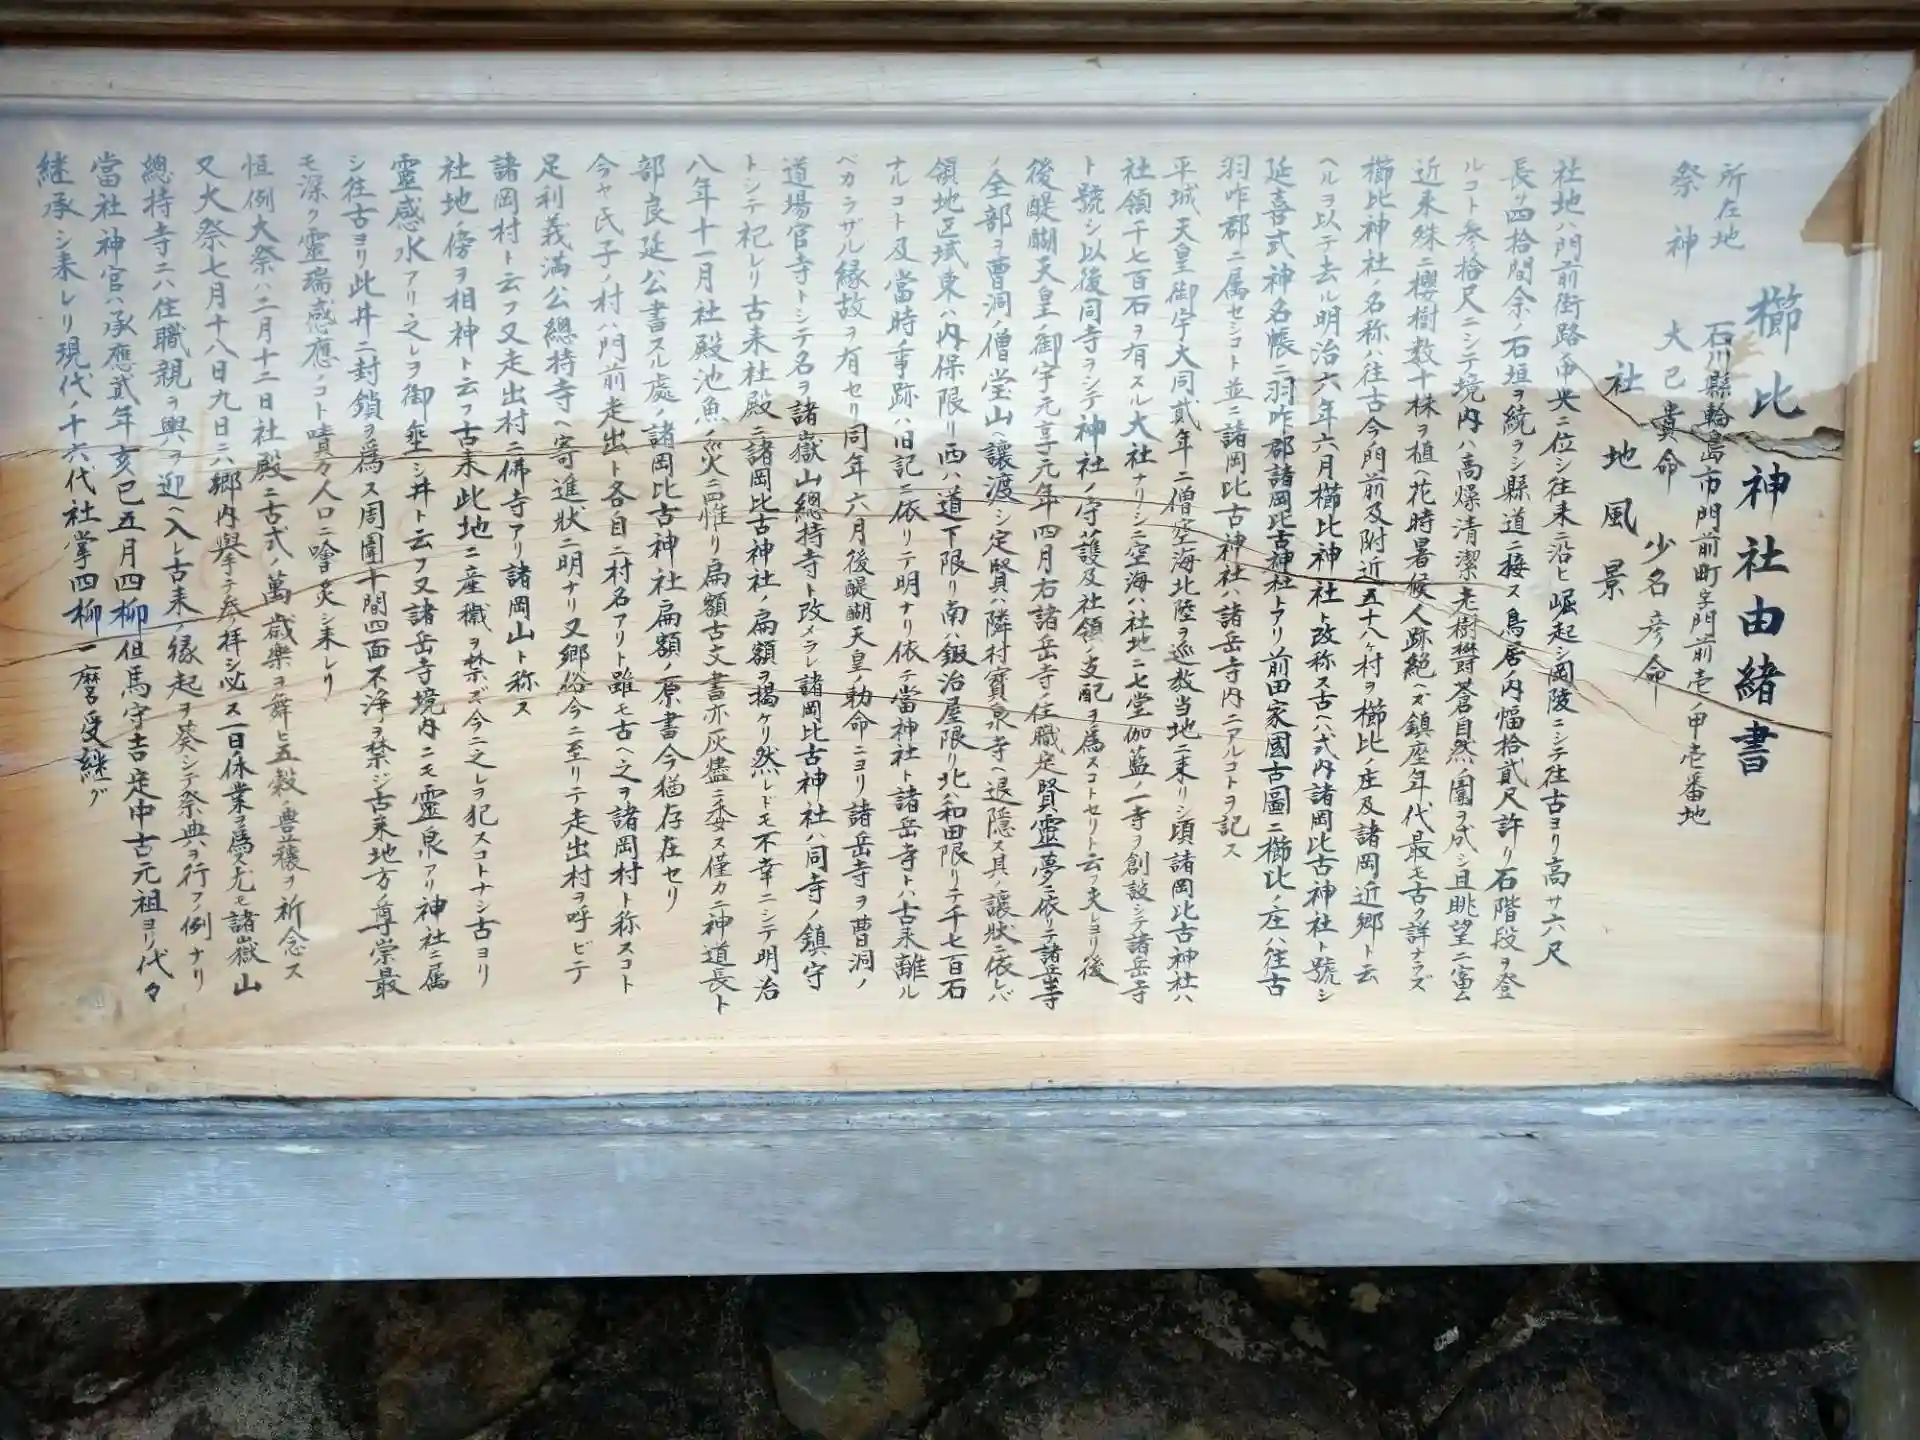 櫛比神社由緒書
所在地 石川縣輪島市門前町字門前壱ノ甲壱番地
祭神 大己貴命 少名彦命
社地風景
社地ハ門前街路ノ中央ニ位シ往来ニ沿ヒ崛起シ岡陵ニシテ往古ヨリ高サ六尺
長サ四拾間余ノ石垣ヲ続ヲシ縣道ニ接ス鳥居ノ内幅拾貳尺許リ石階段ヲ登
ルコト参拾尺ニシテ境内ハ高燥清潔老樹欝蒼自然ノ圍ヲ成シ且眺望ニ富ム
近来殊ニ櫻樹数十株ヲ植ヘ花時暑候人跡絶ヘズ鎮座年代最モ古ク詳ナラズ
櫛比神社ノ名称ハ往古今門前及附近五十八ヶ村ヲ櫛比ノ庄及諸岡近郷ト云
ヘルヲ以テ去ル明治六年六月櫛比神社ト改称ス古ヘハ式内諸岡比古神社ト號シ
延喜式神名帳ニ羽咋郡諸岡比古神社トアリ前田家國古圖ニ櫛比ノ庄ハ往古
羽咋郡ニ属セシコト並ニ諸岡比古神社ハ諸岳寺内ニアルコトヲ記ス
平城天皇御宇大同貳年ニ僧空海北陸ヲ巡教当地ニ来リシ頃諸岡比古神社ハ
社領千七百石ヲ有スル大社ナリシニ空海ハ社地ニ七堂伽藍ノ一寺ヲ創設シテ諸岳寺
ト號シ以後同寺ヲシテ神社ノ守護及社領ノ支配ヲ為スコトセリト云フ夫レヨリ後
後醍醐天皇ノ御宇元享元年四月右諸岳寺ノ住職定賢霊夢ニ依リテ諸岳寺
ノ全部ヲ曹洞ノ僧堂山ヘ讓渡シ定賢ハ隣村寳泉寺ヘ退隠ス其ノ讓状ニ依レバ
領地区域東ハ内保限リ西ハ道下限リ南ハ鍛治屋限リ北ハ和田限リテ千七百石
ナルコト及當時ノ事跡ハ旧記ニ依リテ明ナリ依テ當神社ト諸岳寺トハ古来離ル
ベカラザル縁故ヲ有セリ同年六月後醍醐天皇ノ勅命ニヨリ諸岳寺ヲ曹洞ノ
道場官寺トシテ名ヲ諸嶽山總持寺ト改メラレ諸岡比古神社ハ同寺ノ鎮守
トシテ祀レリ古来社殿ニ諸岡比古神社ノ扁額ヲ揭ケリ然レドモ不幸ニシテ明治
八年十一月社殿池魚ノ災ニ罹リ扁額古文書亦灰燼ニ委ス僅カニ神道長ト
部良延公書スル處ノ諸岡比古神社扁額ノ原書今猶存在セリ
今ヤ氏子ノ村ハ門前走出ト各自ニ村名アリト雖モ古ヘ之ヲ諸岡村ト称スコト
足利義満公總持寺ヘ寄進状ニ明ナリ又郷俗今ニ至リテ走出村ヲ呼ビテ
諸岡村ト云フ又走出村ニ佛寺アリ諸岡山ト称ス
社地ノ傍ヲ相神ト云フ古来此地ニ産穢ヲ禁ズ今ニ之レヲ犯スコトナシ古ヨリ
靈感水アリ之レヲ御垂シ井ト云フ又諸岳寺境内ニモ靈泉アリ神社ニ属
シ往古ヨリ此井ニ封鎖ヲ為ス周圍十間四面不浄ヲ禁ジ古来地方ノ尊崇最
モ深ク靈瑞感應ノコト嘖々人口ニ噲炙シ来レリ
恒例大祭ハ二月十二日社殿ニ古式ノ萬歳樂ヲ舞ヒ五穀ノ豊穣ヲ祈念ス
又大祭七月十八日九日ニハ郷内擧テ参拝シ必ス一日休業ヲ為ス尤モ諸嶽山
總持寺ニハ住職親ラ輿ヲ迎ヘ入レ古来ノ縁起ヲ葵シテ祭典ヲ行フノ例ナリ
當社神官ハ承應貳年亥巳五月四柳但馬守吉定中古元祖ヨリ代々
継承シ来レリ現代ノ十六代社掌四柳一麿呂受継グ